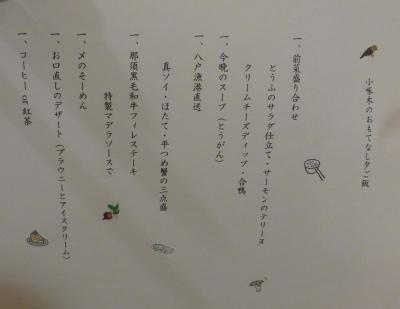 小啄木のおもてなし夕ご飯
一、前菜盛り合わせ
とうふのサラダ仕立て・サーモンのテリーヌ
クリームチーズディップ・合鴨
一、今晩のスープ(とうがん)
一、八戸漁港直送
真ソイ・ほたて・平つめ蟹の三点盛
一、那須黒毛和牛フィレステーキ
特製マデラソースで
一、〆のそーめん
一、お口直しのデザート(ブラウニーとアイスクリーム)
一、コーヒー or 紅茶